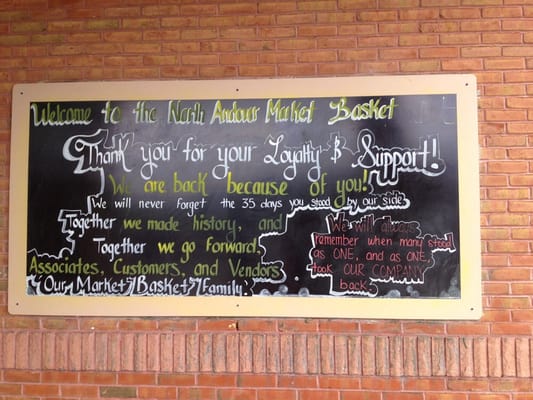 Welcome to the North Andover Market Basket
Thank you for your Loyalty & Support!
We are back because of you!
We will never forget the 35 days you stood by our side.
Together we made history, and
Together we go forward,
Associates, Customers, and Vendors
"Our Market Basket Family."
We will always
remember when many stood
as ONE, and as ONE,
took OUR COMPANY
back.